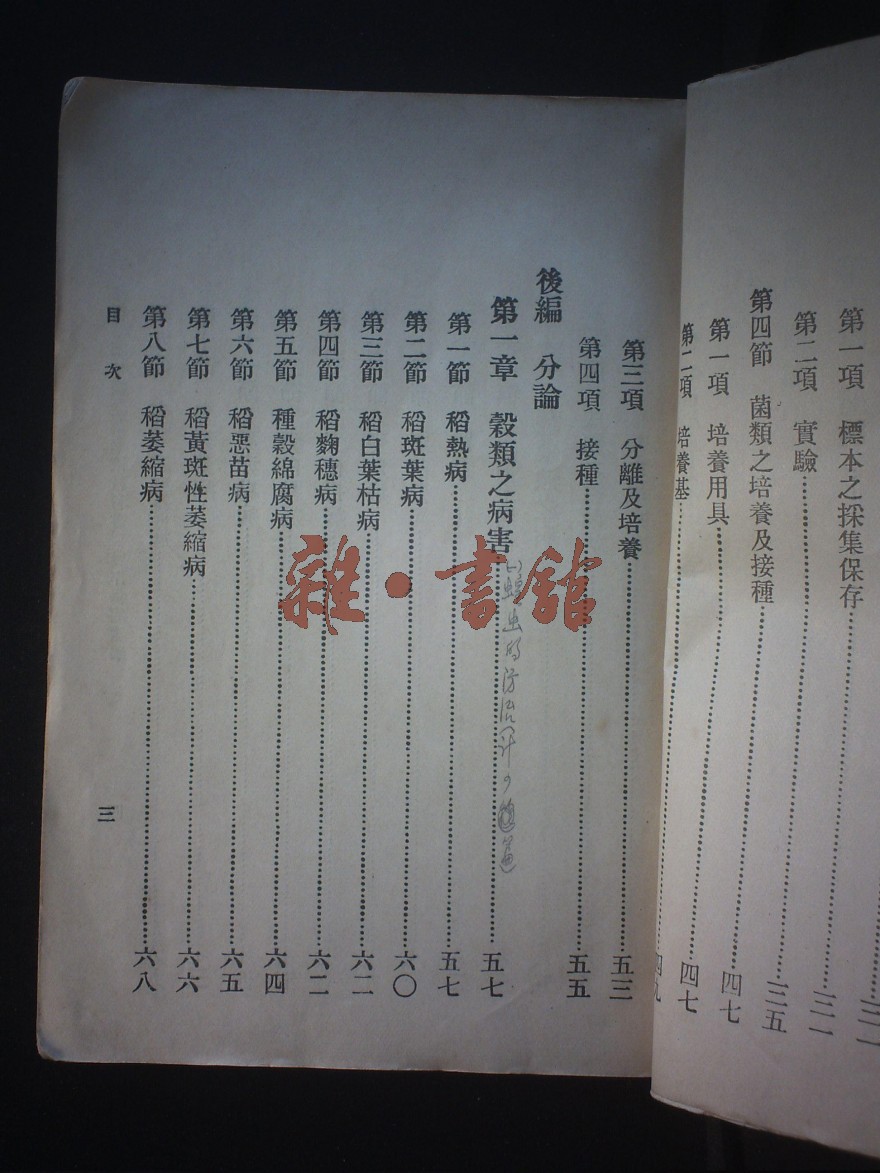 第一項　標本之採集保存……三一
第二項　實驗……三一
第四節　菌類之培養及接種……三五
第一項　培養用具……四七
第二項　培養基……四七
四九
第三項　分離及培養……五三
第四項　接種……五五
後編　分論
第一章　穀類之病害……五七
虫的防治
第一節　稻熱病……五七
第二節　稻斑葉病……六〇
第三節　稻白葉枯病……六二
第四節　稻麴穗病……六二
第五節　種穀綿腐病……六四
第六節　稻惡苗病……六五
第七節　稻黃斑性萎縮病……六六
第八節　稻萎縮病……六八
目次
三
雜·書館